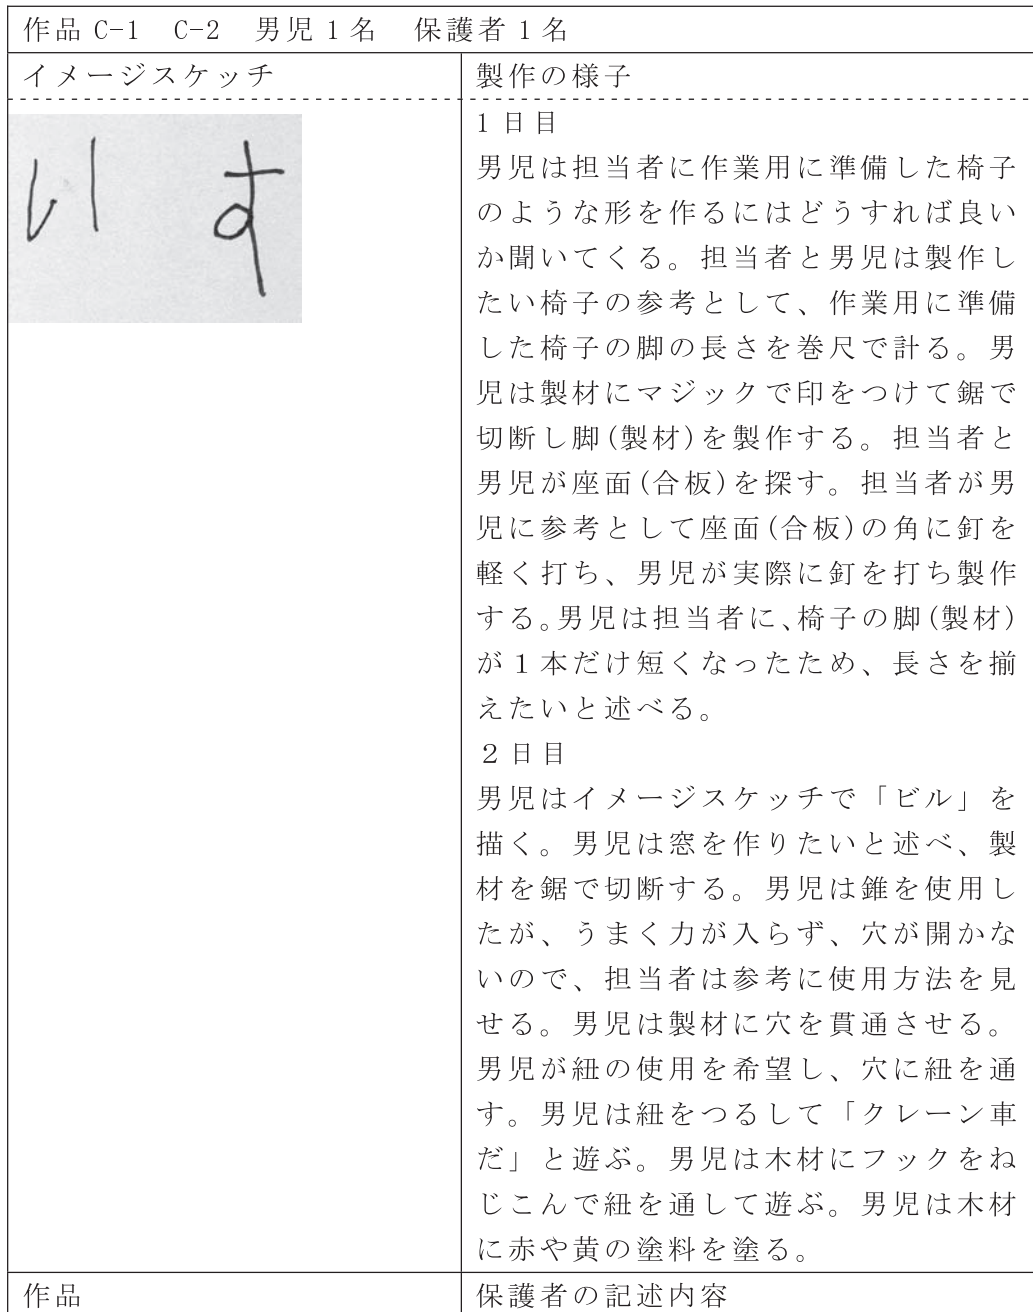 作品 C-1　C-2　男児1名　保護者1名
イメージスケッチ
いす
製作の様子
1日目
男児は担当者に作業用に準備した椅子
のような形を作るにはどうすれば良い
か聞いてくる。担当者と男児は製作し
たい椅子の参考として、作業用に準備
した椅子の脚の長さを巻尺で計る。男
児は製材にマジックで印をつけて鋸で
切断し脚(製材)を製作する。担当者と
男児が座面(合板)を探す。担当者が男
児に参考として座面(合板)の角に釘を
軽く打ち、男児が実際に釘を打ち製作
する。男児は担当者に、椅子の脚(製材)
が1本だけ短くなったため、長さを揃
えたいと述べる。
2日目
男児はイメージスケッチで「ビル」を
描く。男児は窓を作りたいと述べ、製
材を鋸で切断する。男児は錐を使用し
たが、うまく力が入らず、穴が開かな
いので、担当者は参考に使用方法を見
せる。男児は製材に穴を貫通させる。
男児が紐の使用を希望し、穴に紐を通
す。男児は紐をつるして「クレーン車
だ」と遊ぶ。男児は木材にフックをね
じこんで紐を通して遊ぶ。男児は木材
に赤や黄の塗料を塗る。
作品
保護者の記述内容